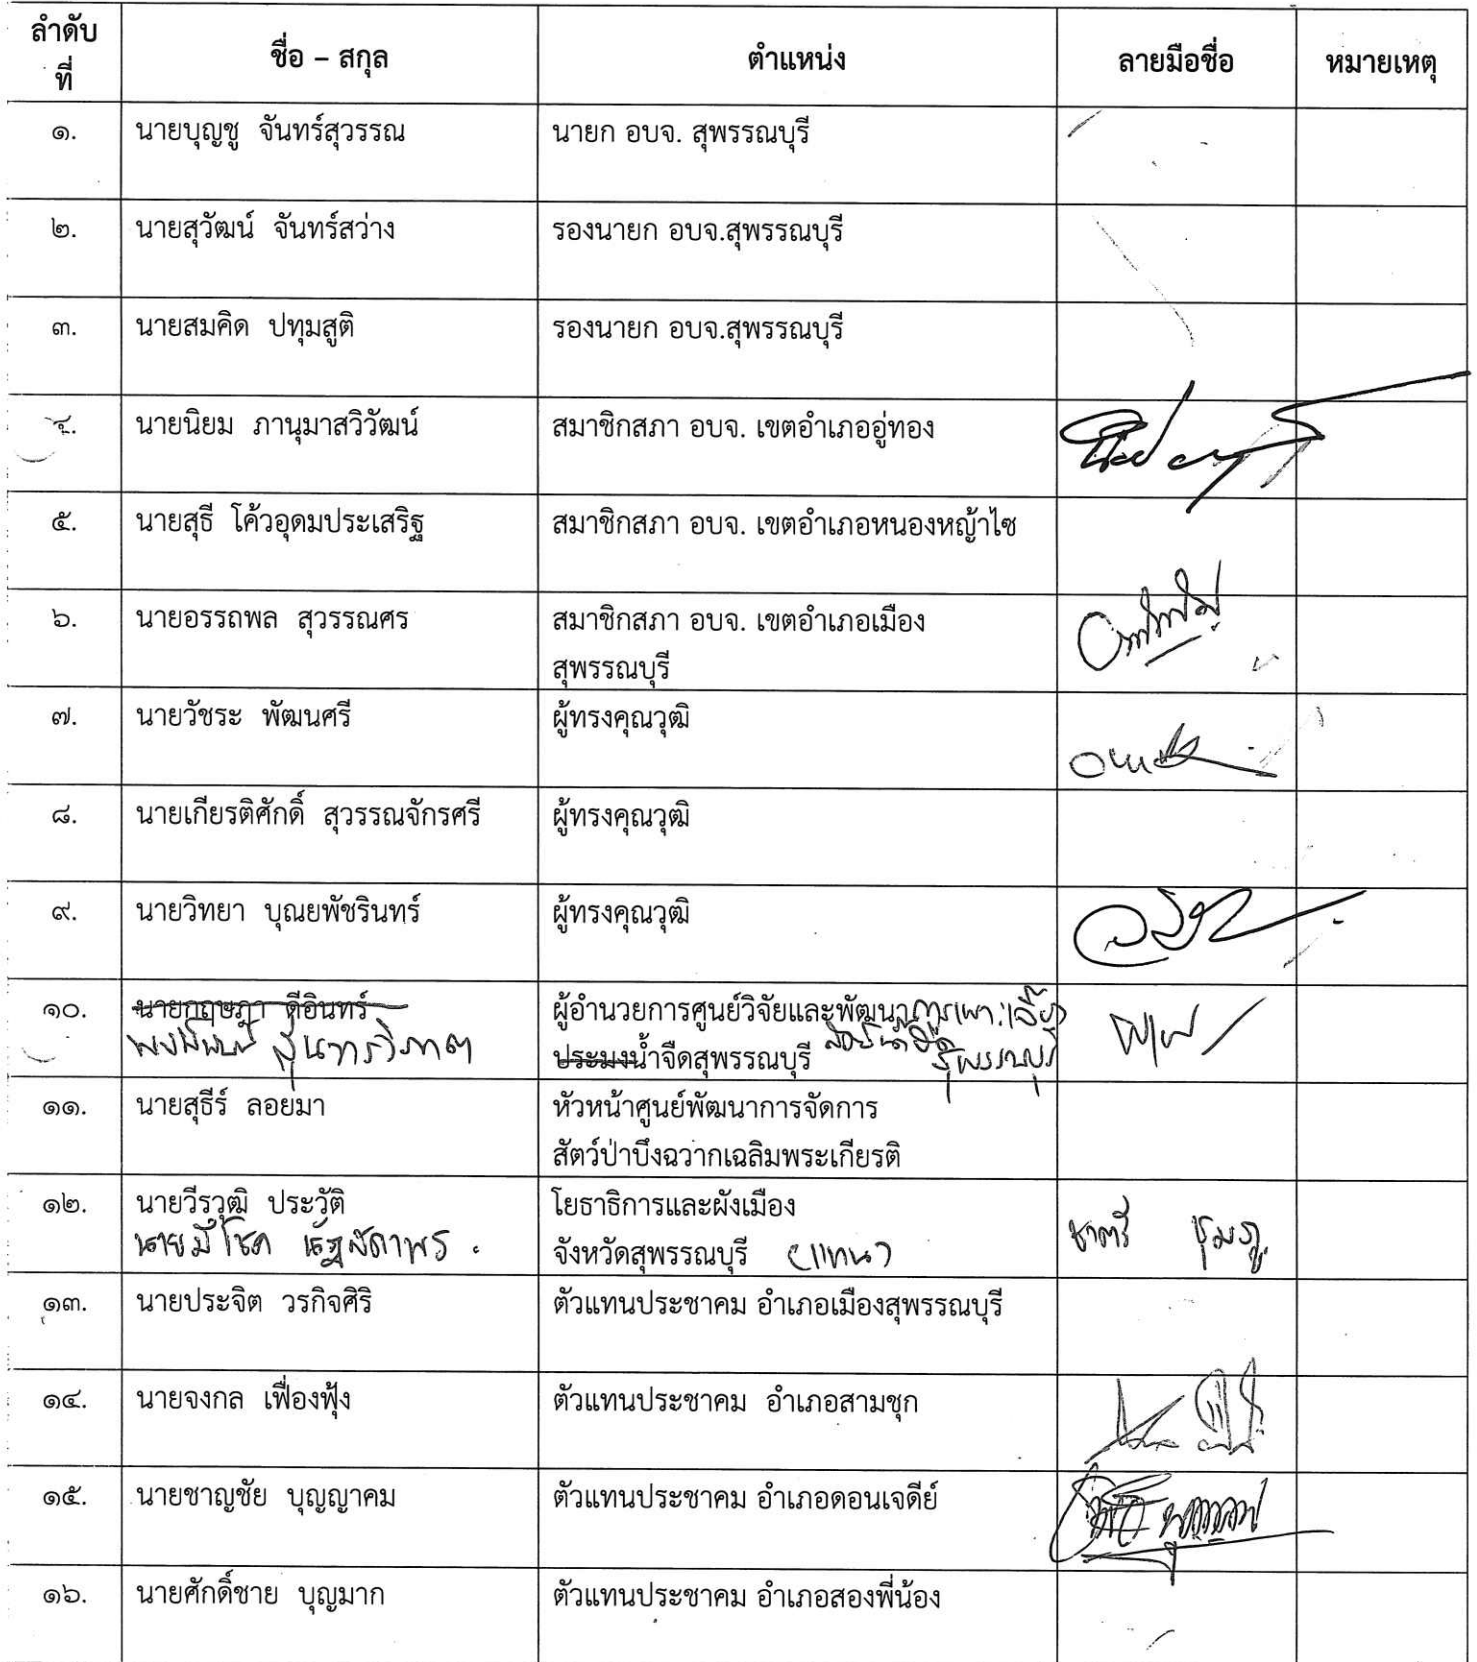 ลำดับ
ที่
ชื่อ – สกุล
ตำแหน่ง
ลายมือชื่อ
หมายเหตุ
๑. นายบุญชู จันทร์สุวรรณ นายก อบจ. สุพรรณบุรี
๒. นายสุวัฒน์ จันทร์สว่าง รองนายก อบจ.สุพรรณบุรี
๓. นายสมคิด ปทุมสูติ รองนายก อบจ.สุพรรณบุรี
๔. นายนิยม ภานุมาสวิวัฒน์ สมาชิกสภา อบจ. เขตอำเภออู่ทอง
๕. นายสุธี โค้วอุดมประเสริฐ สมาชิกสภา อบจ. เขตอำเภอหนองหญ้าไซ
๖. นายอรรถพล สุวรรณศร สมาชิกสภา อบจ. เขตอำเภอเมือง
สุพรรณบุรี
๗. นายวัชระ พัฒนศรี ผู้ทรงคุณวุฒิ
๘. นายเกียรติศักดิ์ สุวรรณจักรศรี ผู้ทรงคุณวุฒิ
๙. นายวิทยา บุณยพัชรินทร์ ผู้ทรงคุณวุฒิ
๑๐. นายกฤษฎา ดีอินทร์ ผู้อำนวยการศูนย์วิจัยและพัฒนาการเพาะเลี้ยง
ประมงน้ำจืดสุพรรณบุรี สัตว์น้ำจืด สุพรรณบุรี
๑๑. นายสุธีร์ ลอยมา หัวหน้าศูนย์พัฒนาการจัดการ
สัตว์ป่าบึงฉวากเฉลิมพระเกียรติ
๑๒. นายวีรวุฒิ ประวัติ โยธาธิการและผังเมือง
นายมีโชค จังหวัดสุพรรณบุรี (แทน) ชาตรี
๑๓. นายประจิต วรกิจศิริ ตัวแทนประชาคม อำเภอเมืองสุพรรณบุรี
๑๔. นายจงกล เฟื่องฟุ้ง ตัวแทนประชาคม อำเภอสามชุก
๑๕. นายชาญชัย บุญญาคม ตัวแทนประชาคม อำเภอดอนเจดีย์
๑๖. นายศักดิ์ชาย บุญมาก ตัวแทนประชาคม อำเภอสองพี่น้อง